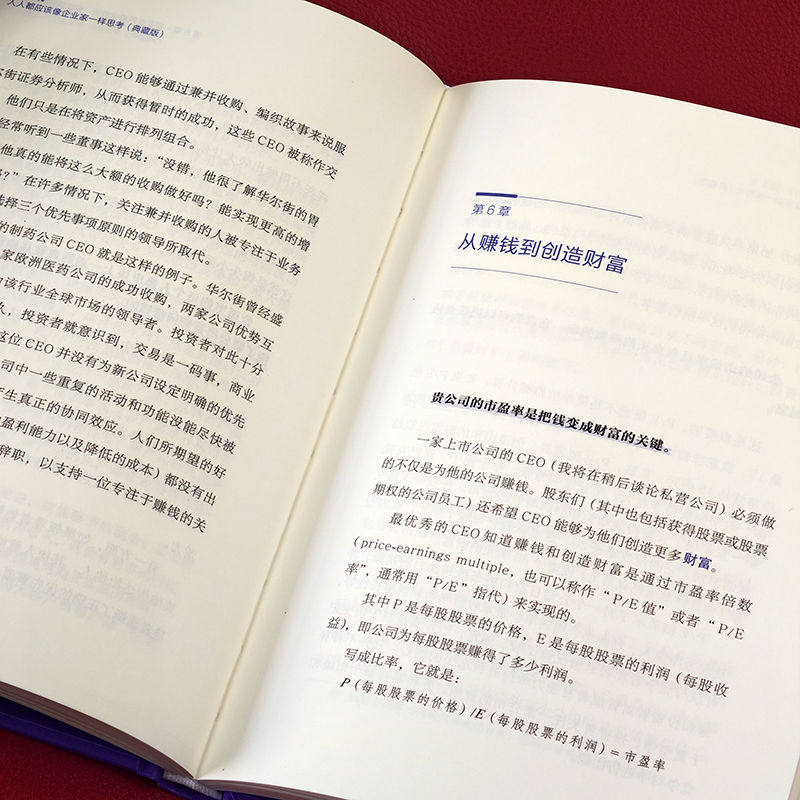 人人都应该像企业家一样思考（典藏版）
在有些情况下，CEO 能够通过兼并收购、编织故事来说服
街证券分析师，从而获得暂时的成功，这些 CEO 被称作交
他们只是在将资产进行排列组合。
经常听到一些董事这样说：“没错，他很了解华尔街的胃
他真的能将这么大额的收购做好吗？能实现更高的增
？”在许多情况下，关注兼并收购的人被专注于业务
选择三个优先事项原则的领导所取代。
的制药公司 CEO 就是这样的例子。华尔街曾经盛
家欧洲医药公司的成功收购，两家公司优势互
该行业全球市场的领导者。投资者对此十分
久，投资者就意识到，交易是一码事，商业
这位 CEO 并没有为新公司设定明确的优先
司中一些重复的活动和功能没能尽快被
产生真正的协同效应。人们所期望的好
盈利能力以及降低的成本）都没有出
辞职，以支持一位专注于赚钱的关
第 6 章
从赚钱到创造财富
贵公司的市盈率是把钱变成财富的关键。
一家上市公司的 CEO（我将在稍后谈论私营公司）必须做
的不仅是为他的公司赚钱。股东们（其中也包括获得股票或股票
期权的公司员工）还希望 CEO 能够为他们创造更多财富。
最优秀的 CEO 知道赚钱和创造财富是通过市盈率倍数
（price-earnings multiple，也可以称作“P/E 值”或者“P/E
率”，通常用“P/E”指代）来实现的。
其中 P 是每股股票的价格，E 是每股股票的利润（每股收
益），即公司为每股股票赚得了多少利润。
写成比率，它就是：
P（每股股票的价格）/E（每股股票的利润）= 市盈率